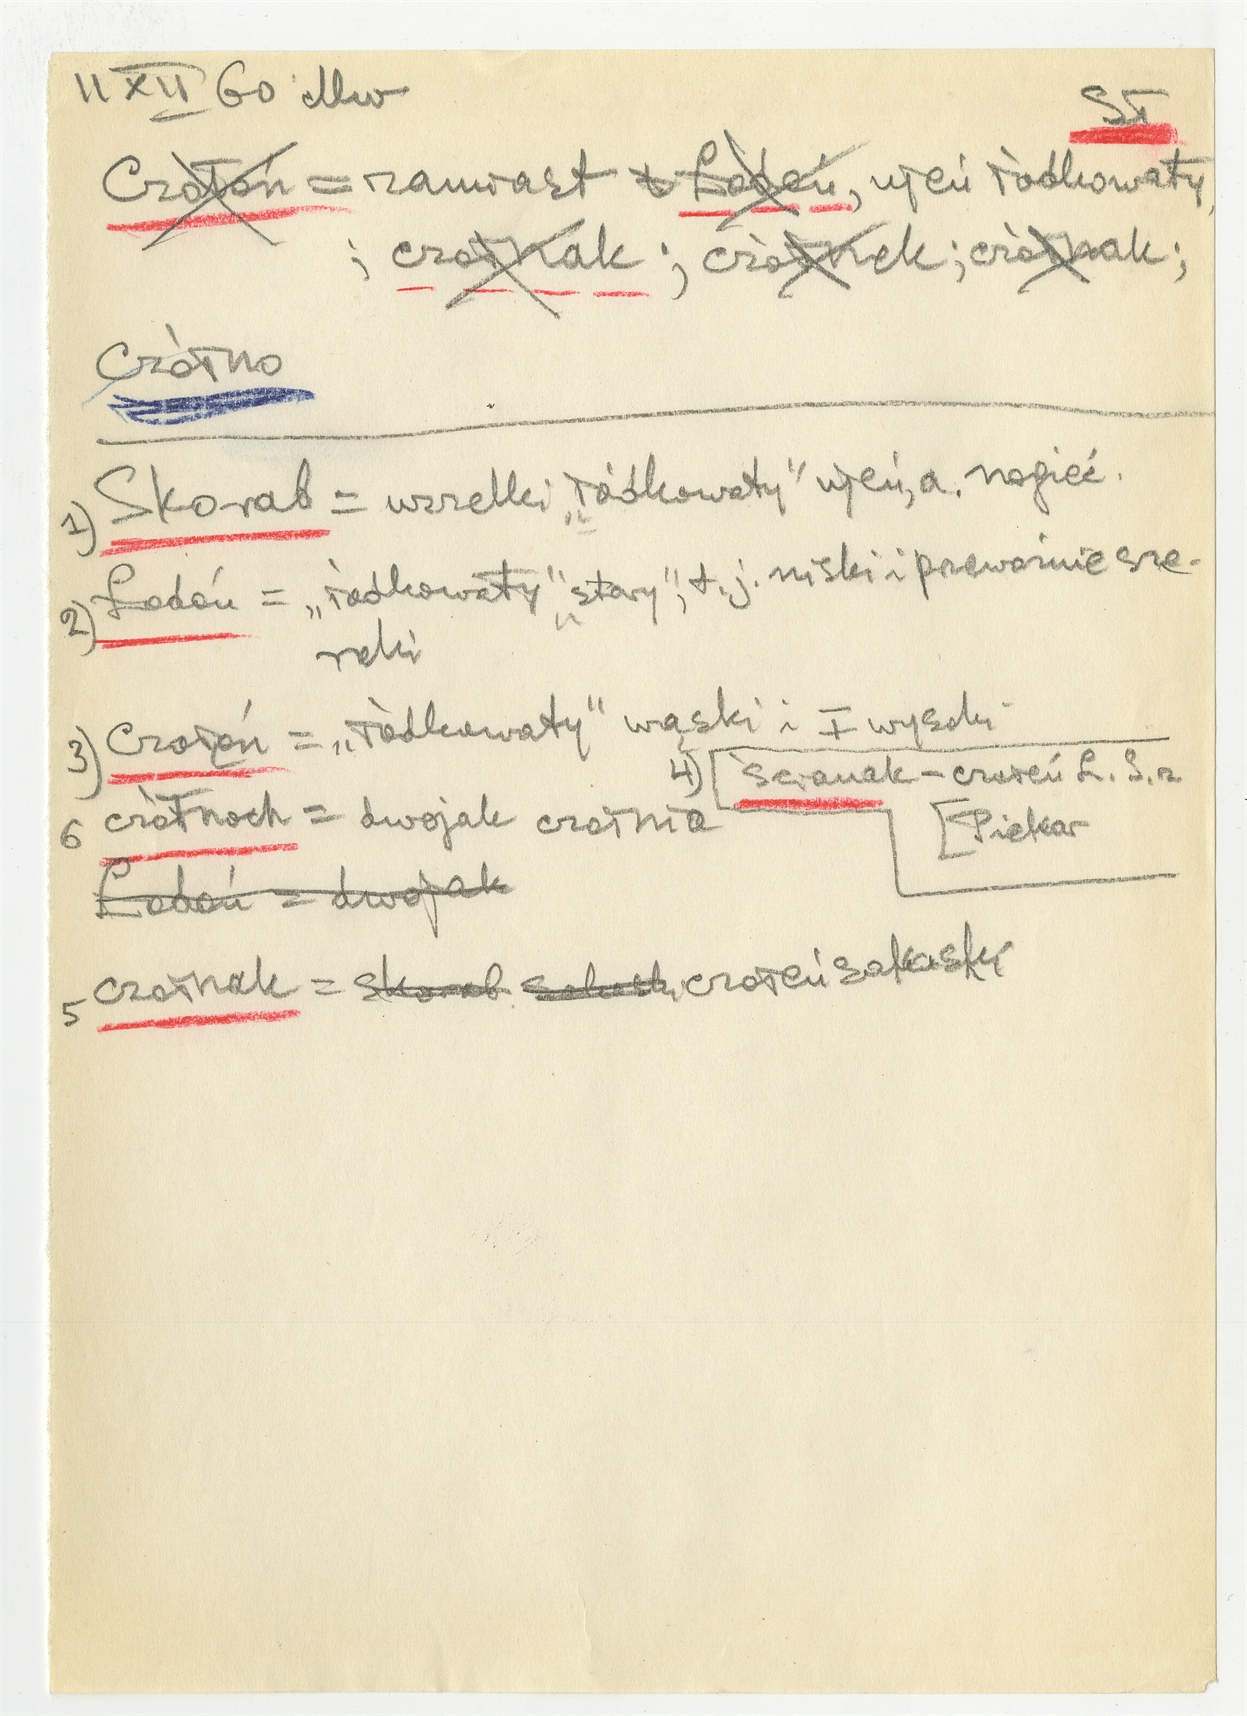 11 XII 60 Mw
SŁ
Czółoń = zamiast Łodoń, ujęń łódkowaty,
; czołnak ; czółnek ; czółnak ;
Czółno
1) Skorab = wszelki „łódkowaty" ujęń, a. nogieć.
2) Łodoń = „łódkowaty" „stary", t. j. niski i przeważnie sze-
roki
3) Czołeń = „łódkowaty" wąski i I wysoki
4) Ścianak – czołeń L. S. z
[Piekar
6 czółnoch = dwojak czołnia
Łodoń = dwojak
5 czołnak = skorab czołeń sakaski